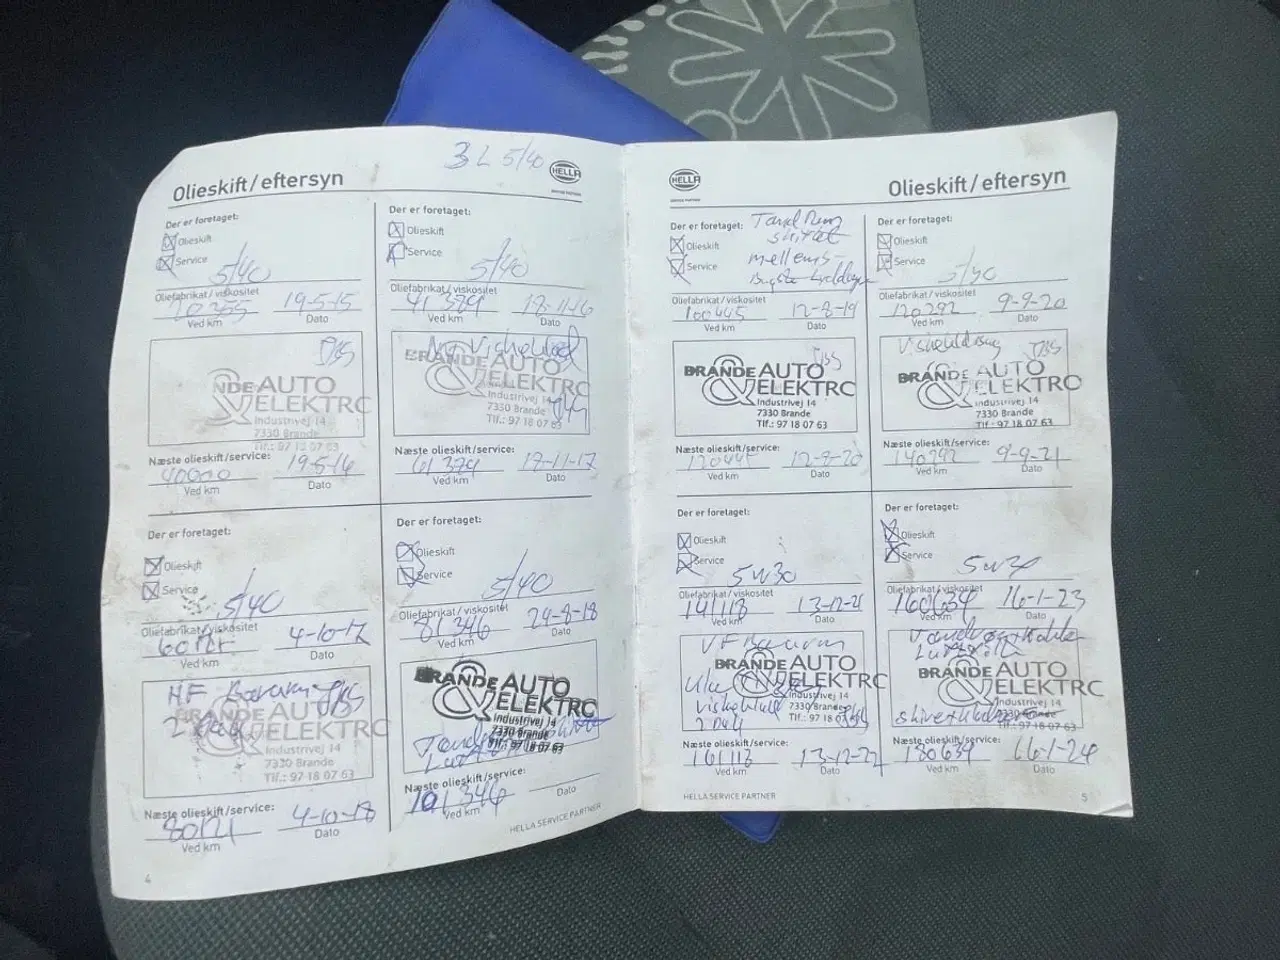 3 L 5/40
HELLA
SERVICE PARTNER
Olieskift/eftersyn
Der er foretaget:
Olieskift
Service
5/40
Oliefabrikat/viskositet
20355 19-5-15
Ved km Dato
TBS
NDE AUTO
& ELEKTRO
Industrivej 14
7330 Brande
Tlf.: 97 18 07 63
Næste olieskift/service:
40000 19-5-16
Ved km Dato
Der er foretaget:
Olieskift
Service
5/40
Oliefabrikat/viskositet
41379 17-11-16
Ved km Dato
BRANDE AUTO
& ELEKTRO
Industrivej 14
7330 Brande
Tlf.: 97 18 07 63
Næste olieskift/service:
61379 17-11-17
Ved km Dato
Der er foretaget:
Olieskift
Service
5/40
Oliefabrikat/viskositet
4-10-17
Ved km Dato
HF TBS
AUTO
& ELEKTRO
Industrivej 14
7330 Brande
Tlf.: 97 18 07 63
Næste olieskift/service:
80121 4-10-18
Ved km Dato
Der er foretaget:
Olieskift
Service
5/40
Oliefabrikat/viskositet
81346 24-8-18
Ved km Dato
BRANDE AUTO
& ELEKTRO
Industrivej 14
7330 Brande
Tlf.: 97 18 07 63
Næste olieskift/service:
101346
Ved km Dato
4
HELLA SERVICE PARTNER
HELLA
SERVICE PARTNER
Olieskift/eftersyn
Der er foretaget: Tand Rem
skiftet
Olieskift
Service
Oliefabrikat/viskositet
100445 12-8-19
Ved km Dato
TBS
BRANDE AUTO
& ELEKTRO
Industrivej 14
7330 Brande
Tlf.: 97 18 07 63
Næste olieskift/service:
120445 12-8-20
Ved km Dato
Der er foretaget:
Olieskift
Service
5/40
Oliefabrikat/viskositet
120292 9-9-20
Ved km Dato
TBS
BRANDE AUTO
& ELEKTRO
Industrivej 14
7330 Brande
Tlf.: 97 18 07 63
Næste olieskift/service:
140292 9-9-21
Ved km Dato
Der er foretaget:
Olieskift
Service
5W30
Oliefabrikat/viskositet
141113 13-12-21
Ved km Dato
VF
BRANDE AUTO
& ELEKTRO
Industrivej 14
7330 Brande
Tlf.: 97 18 07
Næste olieskift/service:
161113 13-12-22
Ved km Dato
Der er foretaget:
Olieskift
Service
5W30
Oliefabrikat/viskositet
160634 16-1-23
Ved km Dato
BRANDE AUTO
& ELEKTRO
Industrivej 14
7330 Brande
Tlf.: 97 18 07 63
Næste olieskift/service:
180634 16-1-24
Ved km Dato
HELLA SERVICE PARTNER
5